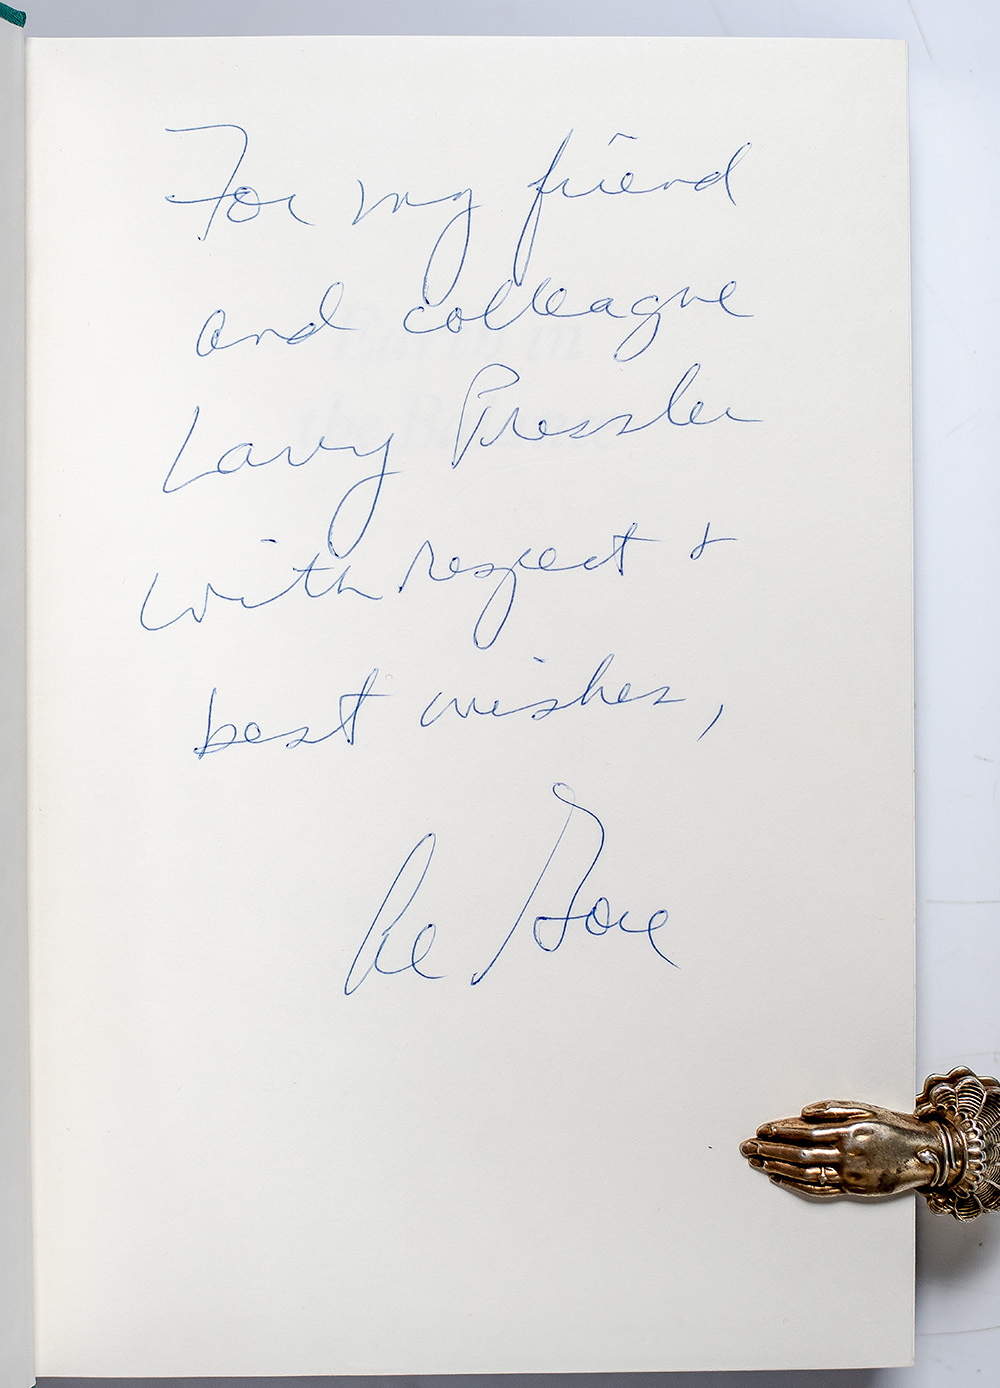 For my friend
and colleague
Larry Pressler
with respect &
best wishes,
Al Gore